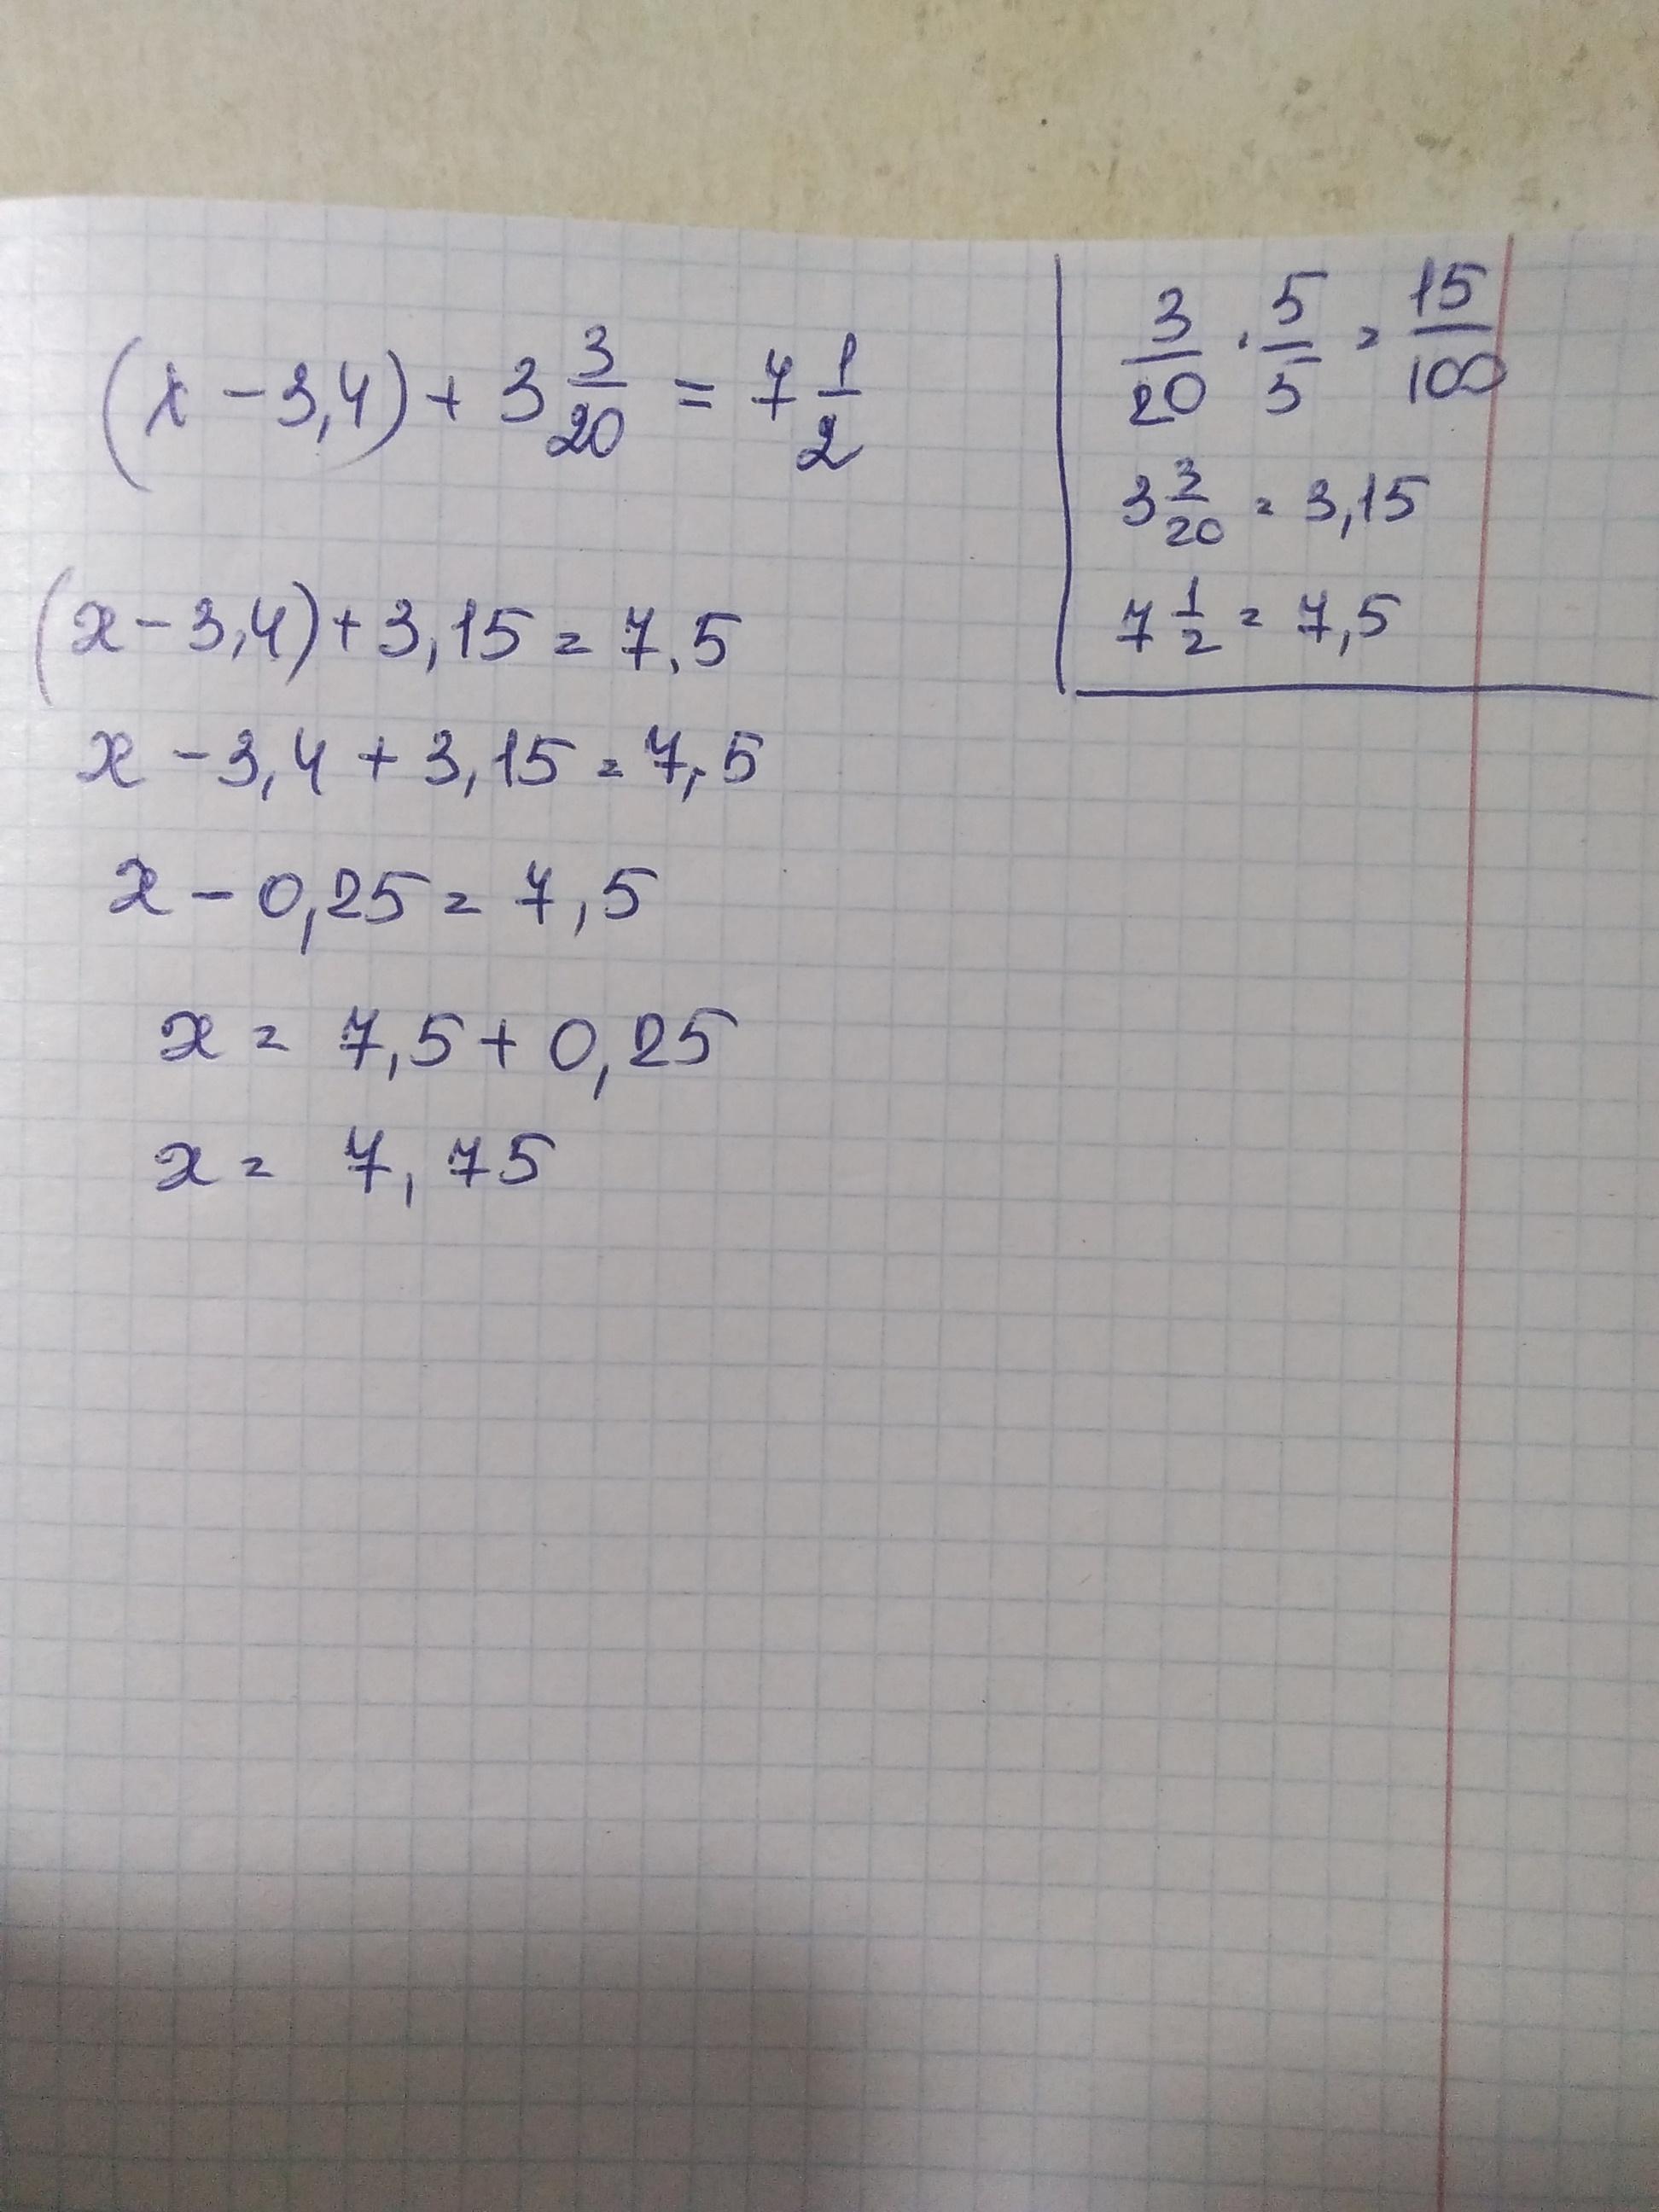 (x - 3,4) + 3 3/20 = 7 1/2
(x - 3,4) + 3,15 = 7,5
x - 3,4 + 3,15 = 7,5
x - 0,25 = 7,5
x = 7,5 + 0,25
x = 7,75
3/20 · 5/5 = 15/100
3 3/20 = 3,15
7 1/2 = 7,5